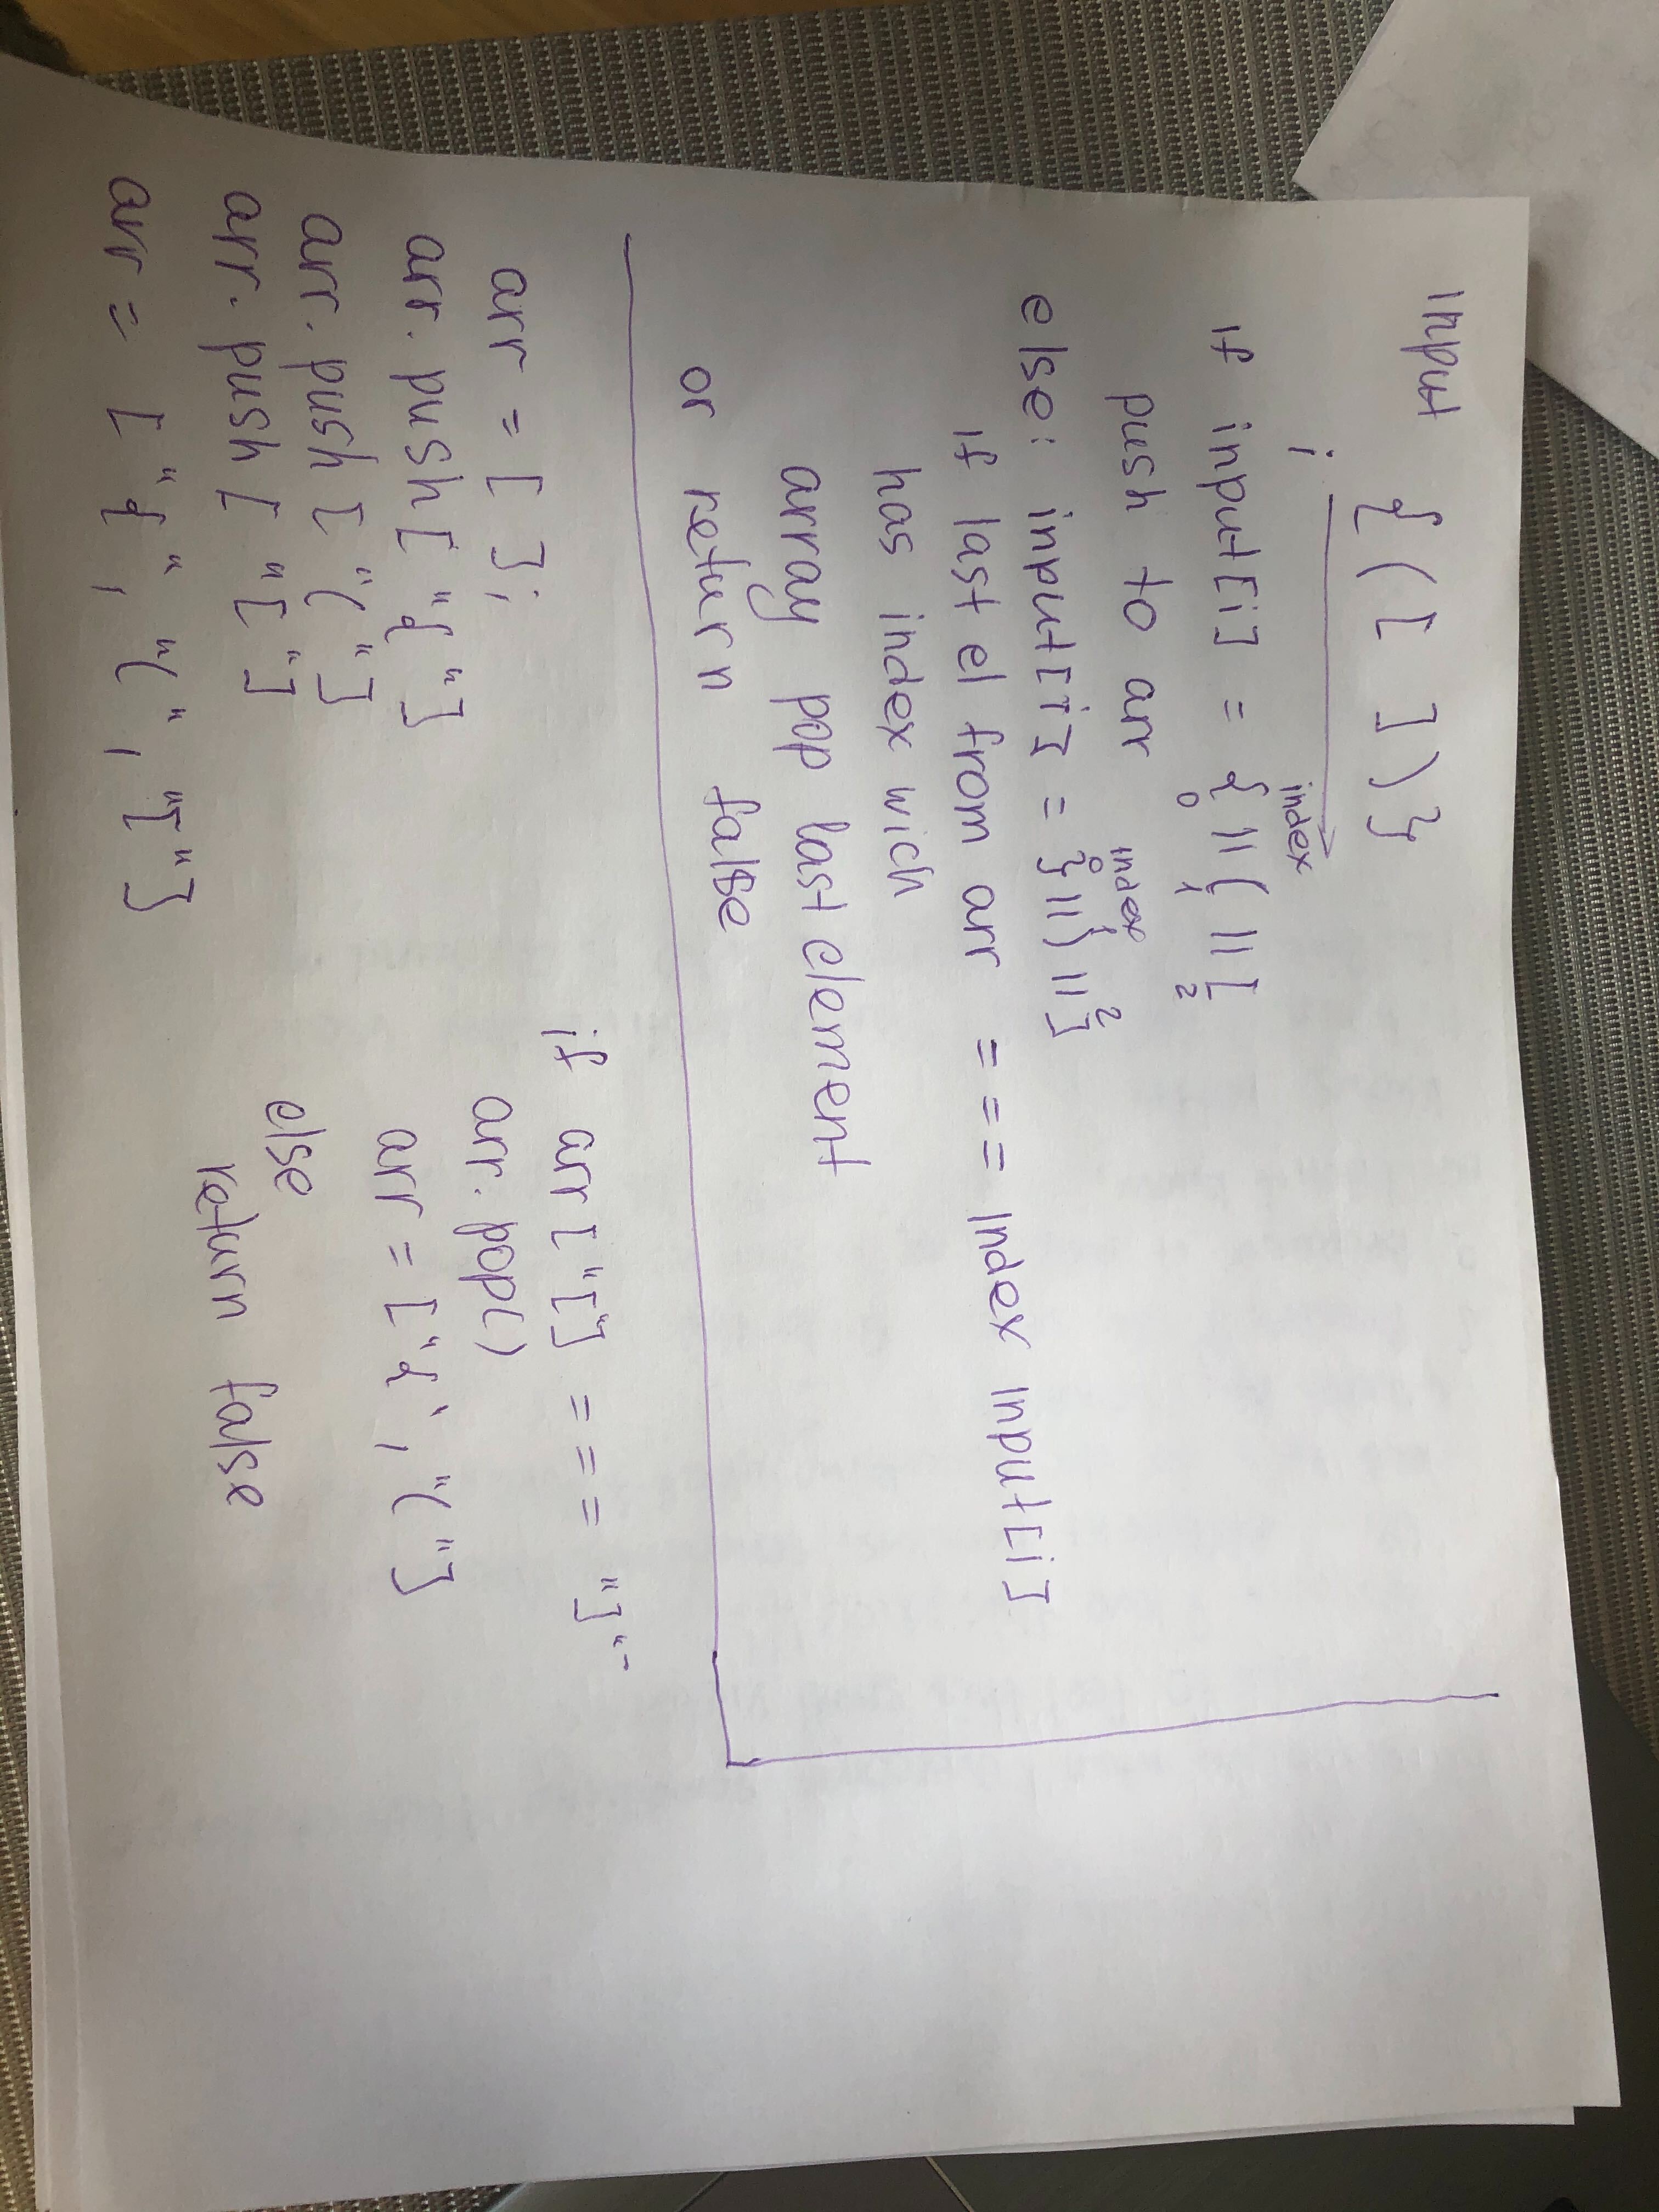 Input
{ ( [ ] ) }
i
index
if input[i] = { || ( || [
0 1 2
push to arr
index
0 1 2
else: input[i] = } || ) || ]
if last el from arr === index input[i]
has index wich
array pop last element
or return false
arr = [ ];
arr.push ["{"]
arr.push ["("]
arr.push ["["]
arr = ["{", "(", "["]
if arr["["] === "]"
arr.pop()
arr = ["{", "("]
else
return false